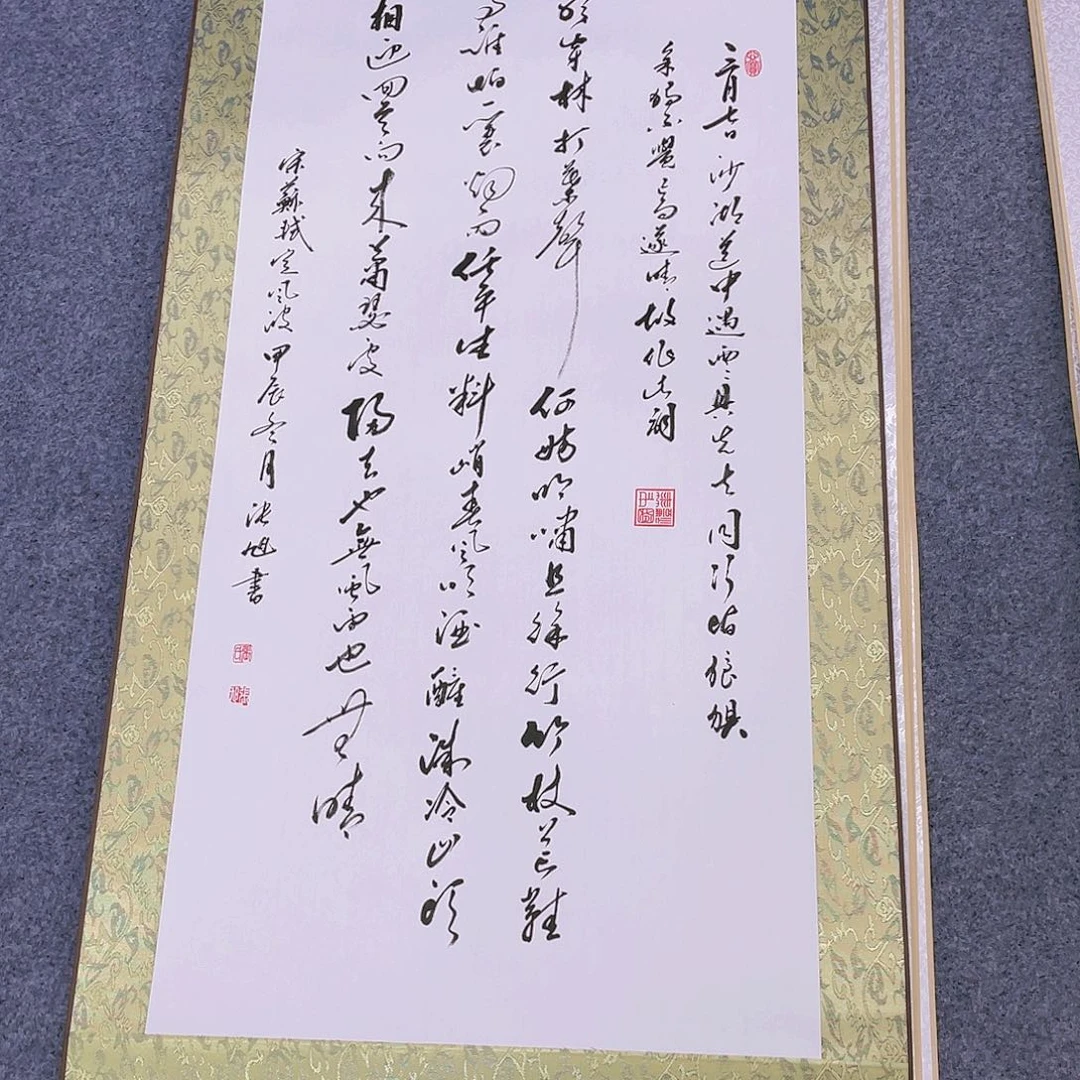 三月七日沙湖道中遇雨〻具先去同行皆狼狽
余獨不覺已而遂晴故作此詞
聽穿林打葉聲何妨吟嘯且徐行竹杖芒鞋
馬誰怕一蓑烟雨任平生料峭春風吹酒醒微冷山頭
相迎回首向來蕭瑟處歸去也無風雨也無晴
宋蘇軾定風波甲辰冬月張旭書